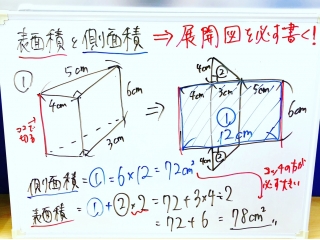 表面積と側面積 ⇒ 展開図を必ず書く!
①
5cm
4cm
6cm
3cm
ココで
切る
⇒
4cm ②
4cm 3cm 5cm
①
12cm
6cm
②
側面積=①=6×12=72cm²
表面積=①+②×2=72+3×4÷2
=72+6=78cm²
コッチの方が
必ず大きい